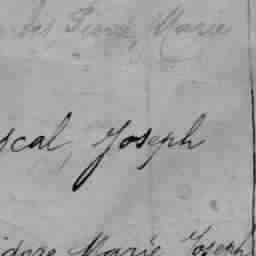 Marie
scal, Joseph
idore Marie Joseph